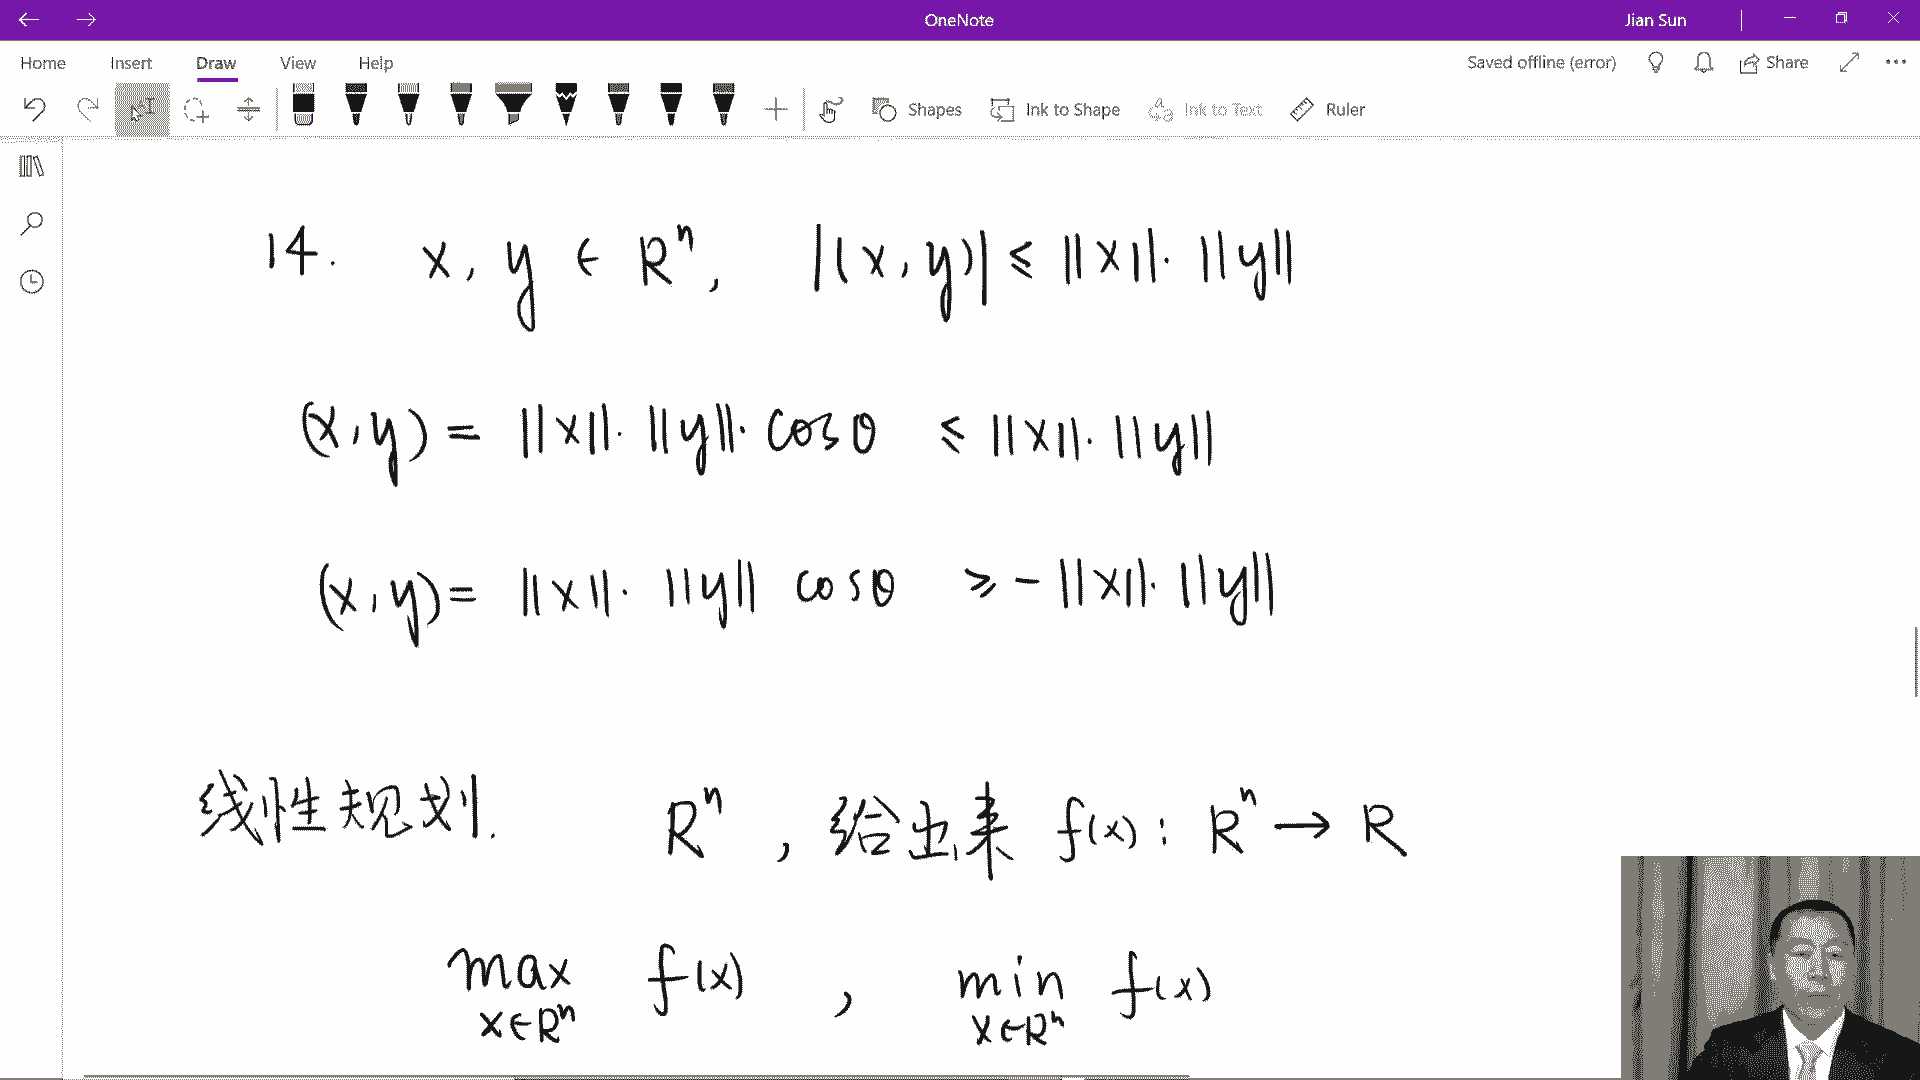 OneNote
Jian Sun
Home Insert Draw View Help
Saved offline (error) Share
Shapes Ink to Shape Ink to Text Ruler
14. x, y ∈ Rⁿ, |(x, y)| ≤ ||x||·||y||
(x, y) = ||x||·||y||·cosθ ≤ ||x||·||y||
(x, y) = ||x||·||y|| cosθ ≥ -||x||·||y||
线性规划. Rⁿ, 给出来 f(x): Rⁿ → R
max f(x), min f(x)
x∈Rⁿ x∈Rⁿ